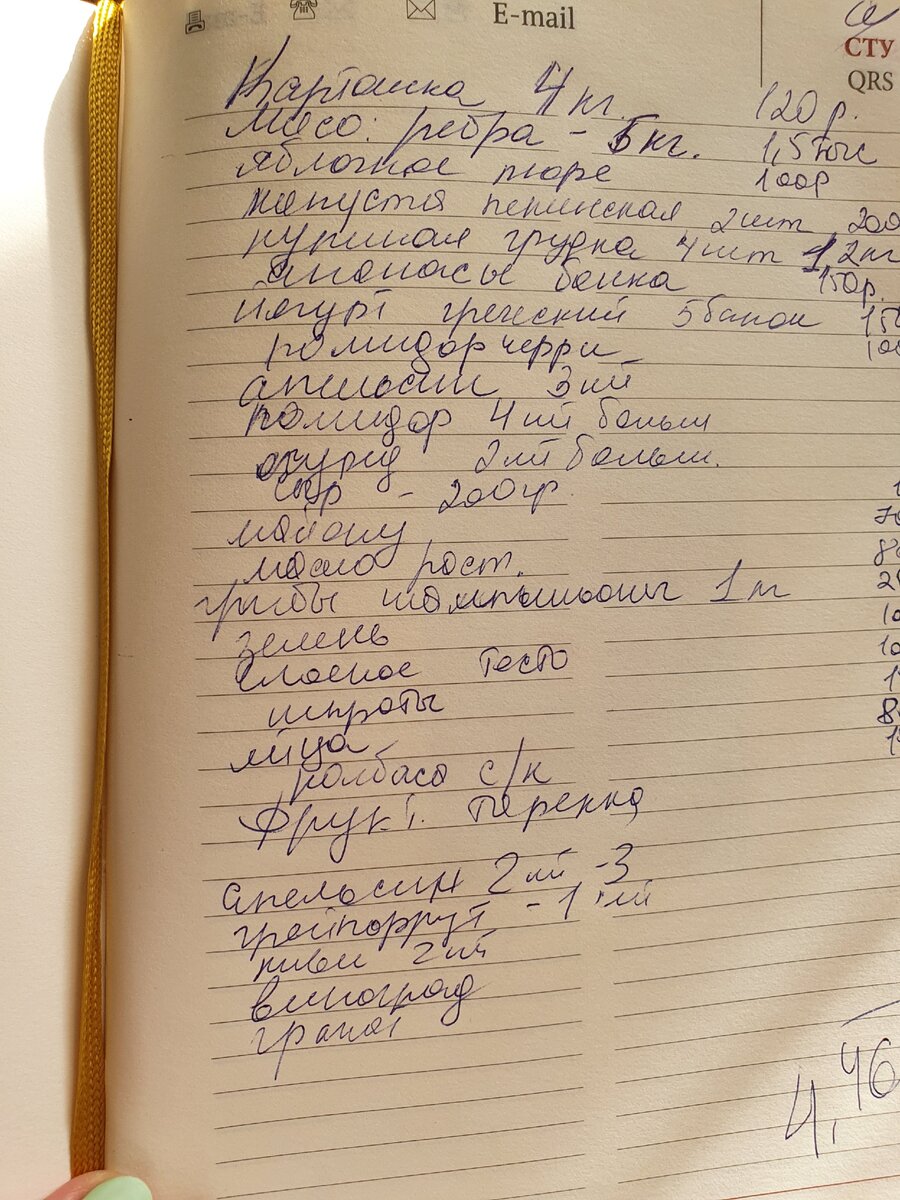 E-mail
СТУ
QRS
Картошка 4 кг. 120 р.
мясо: ребра - 5 кг. 1,5 тыс
яблочное пюре 100р
капуста пекинская 2 шт 200
куриная грудка 4 шт 1,2 кг
ананасы банка 150р.
йогурт греческий 5 банок 15
помидор черри 10
апельсин 3 шт
помидор 4 шт больш
огурец 2 шт больш.
сыр - 200 гр
майонез
масло раст. 8
грибы шампиньоны 1 кг 2
зелень 10
слоеное тесто 10
шпроты 1
яйца 8
колбаса с/к 1
Фрукт. тарелка
апельсин 2 шт -3
грейпфрут - 1 шт
киви 2 шт
виноград
гранат
4,46